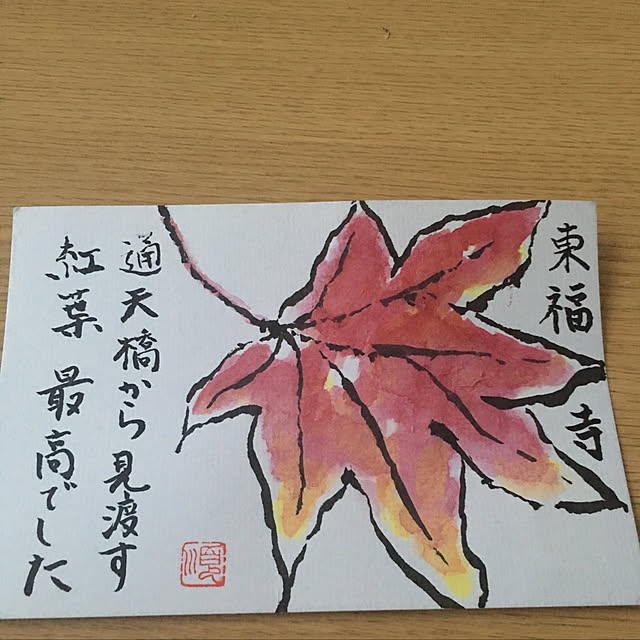 東福寺
通天橋から見渡す
紅葉 最高でした